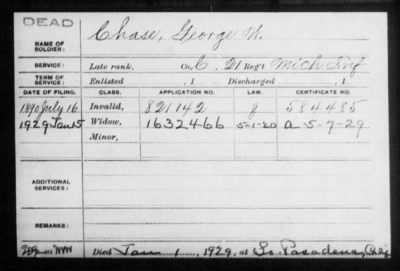 DEAD
NAME OF SOLDIER: Chase, George W.
SERVICE: Late rank, Co. C, 21 Reg't Mich Inf
TERM OF SERVICE: Enlisted , 1 Discharged , 1
DATE OF FILING. CLASS. APPLICATION NO. LAW. CERTIFICATE NO.
1890 July 16 Invalid, 821142 g 584485
1929 Jan 15 Widow, 1632466 5-1-20 a 5-7-29
Minor,
ADDITIONAL SERVICES:
REMARKS:
Died Jan 1, 1929, at So. Pasadena, Cal